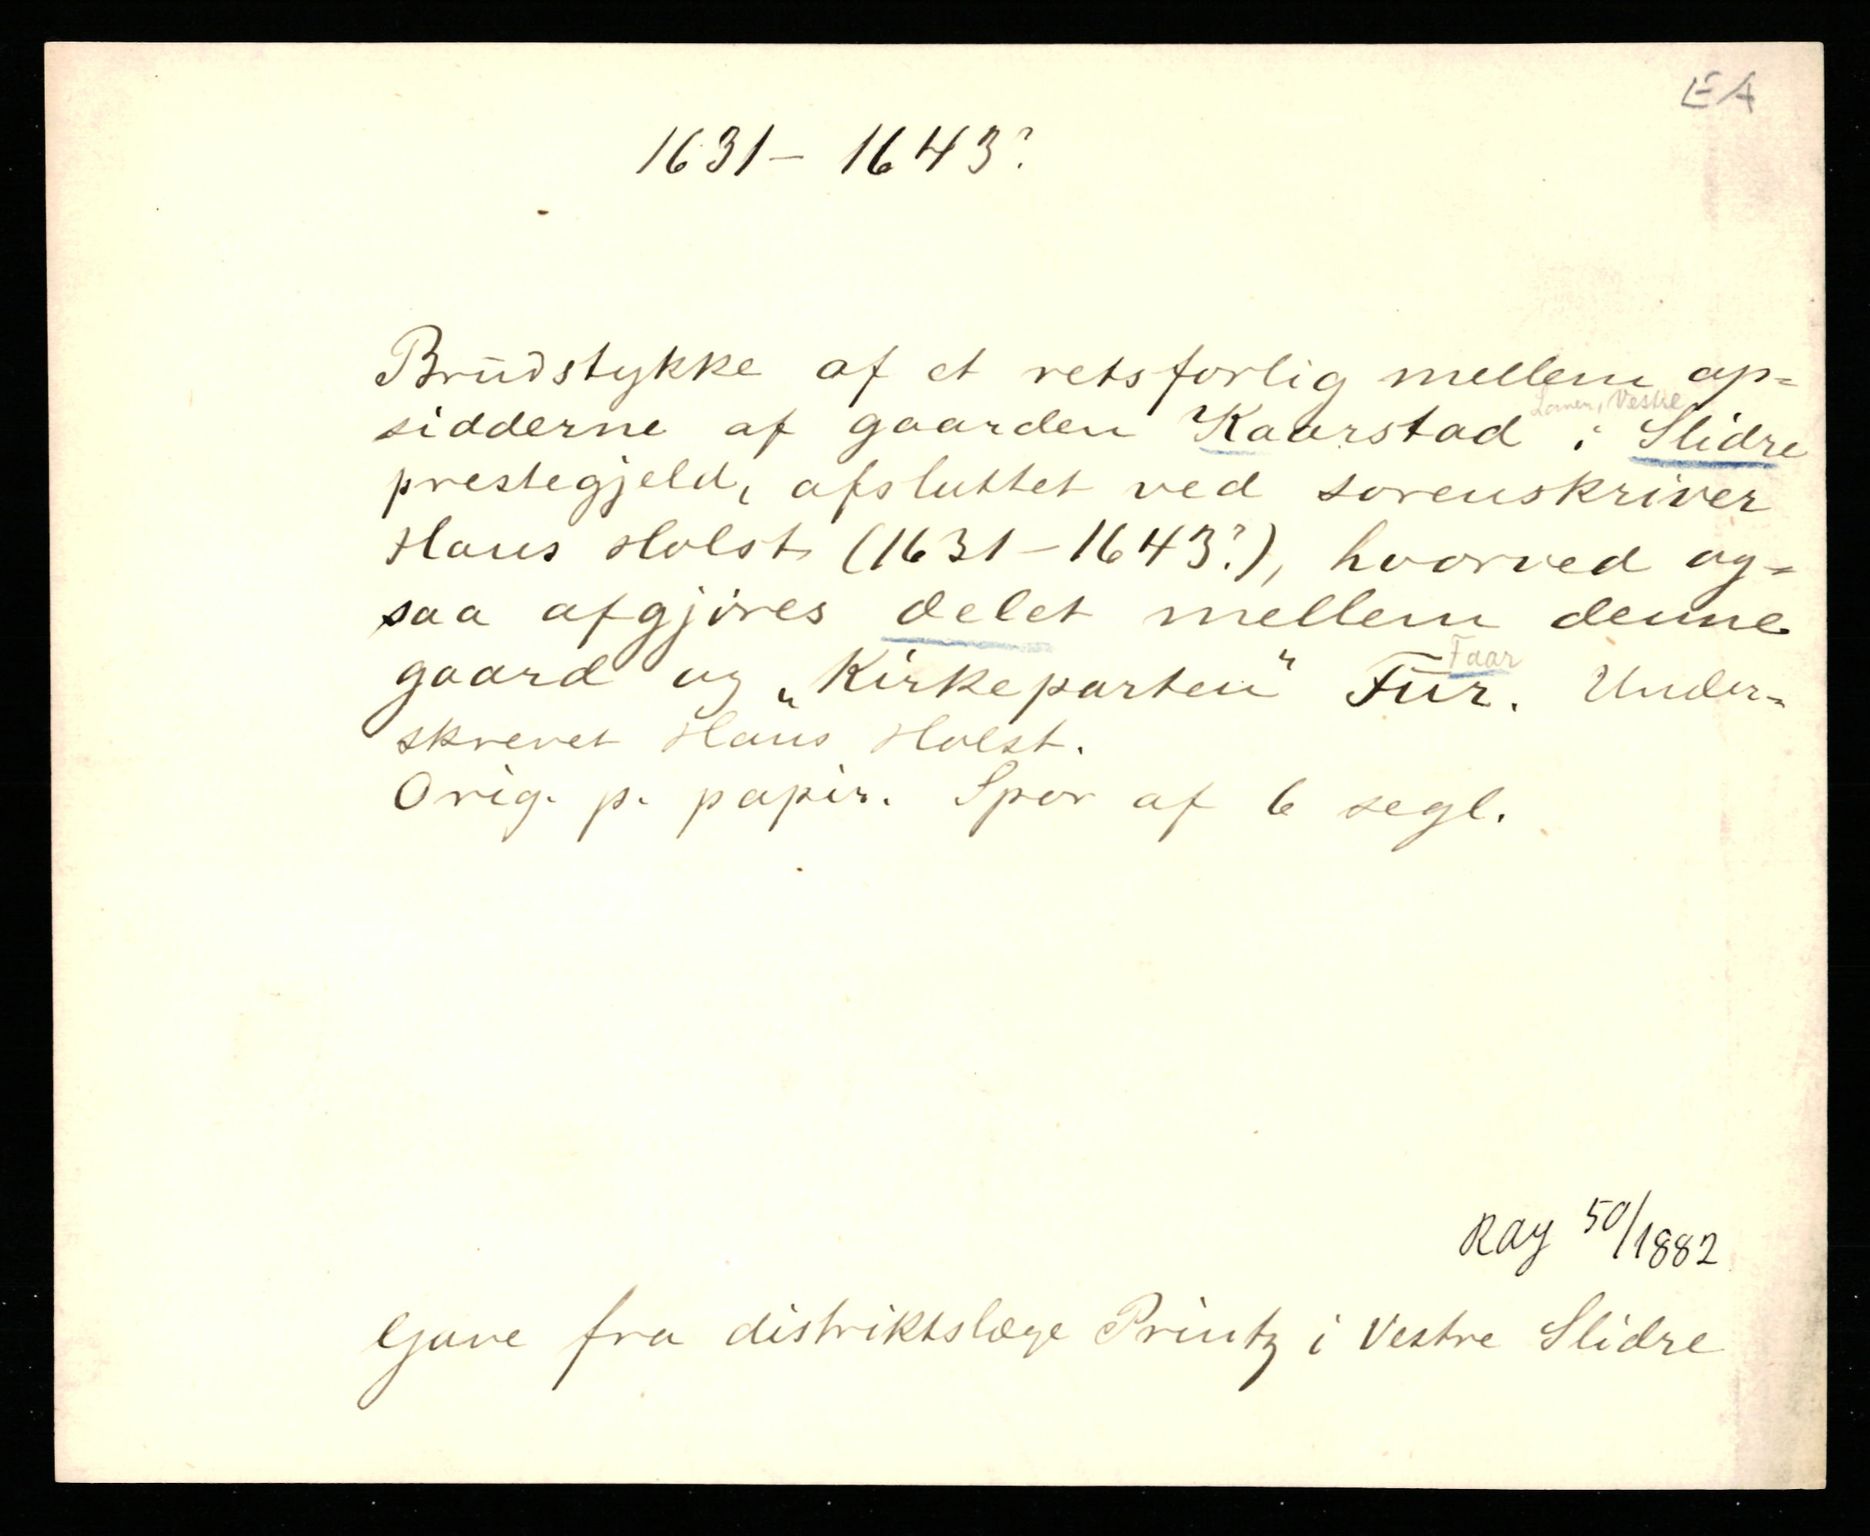 EA
1631 - 1643?
Brudstykke af et retsforlig mellem op=
sidderne af gaarden Kaarstad i Slidre
Lomen, Vestre
prestegjeld, afsluttet ved sorenskriver
Hans Holst (1631-1643?), hvorved og=
saa afgjøres delet mellem denne
gaard og „Kirkeparten" Fur. Under=
Faar
skrevet Hans Holst.
Orig. p. papir. Spor af 6 segl.
RAy 50/1882
Gave fra distriktslæge Printz i Vestre Slidre